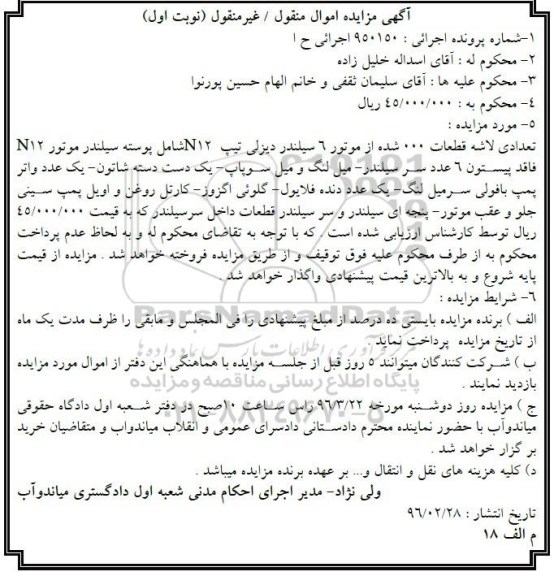 آگهی مزایده اموال منقول / غیرمنقول (نوبت اول)
۱-شماره پرونده اجرائی : ۹۵۰۱۵۰ اجرائی ح ا
۲- محکوم له : آقای اسداله خلیل زاده
۳- محکوم علیه ها : آقای سلیمان ثقفی و خانم الهام حسین پورنوا
۴- محکوم به : ۴۵/۰۰۰/۰۰۰ ریال
۵- مورد مزایده :
تعدادی لاشه قطعات ۰۰۰ شده از موتور ۶ سیلندر دیزلی تیپ N۱۲شامل پوسته سیلندر موتور N۱۲
فاقد پیستون ۶ عدد سر سیلندر- میل لنگ و میل سوپاپ- یک دست دسته شاتون- یک عدد واتر
پمپ بافولی سرمیل لنگ- یک عدد دنده فلایول- گلوئی اگزوز- کارتل روغن و اویل پمپ سینی
جلو و عقب موتور- پنجه ای سیلندر و سر سیلندر قطعات داخل سرسیلندر که به قیمت ۴۵/۰۰۰/۰۰۰
ریال توسط کارشناس ارزیابی شده است . که با توجه به تقاضای محکوم له و به لحاظ عدم پرداخت
محکوم به از طرف محکوم علیه فوق توقیف و از طریق مزایده فروخته خواهد شد . مزایده از قیمت
پایه شروع و به بالاترین قیمت پیشنهادی واگذار خواهد شد .
۶- شرایط مزایده :
الف ) برنده مزایده بایستی ده درصد از مبلغ پیشنهادی را فی المجلس و مابقی را ظرف مدت یک ماه
از تاریخ مزایده پرداخت نماید
ب ) شرکت کنندگان میتوانند ۵ روز قبل از جلسه مزایده با هماهنگی این دفتر از اموال مورد مزایده
بازدید نمایند .
ج ) مزایده روز دوشنبه مورخه ۹۶/۳/۲۲ راس ساعت ۱۰صبح در دفتر شعبه اول دادگاه حقوقی
میاندوآب با حضور نماینده محترم دادستانی دادسرای عمومی و انقلاب میاندواب و متقاضیان خرید
بر گزار خواهد شد .
د) کلیه هزینه های نقل و انتقال و... بر عهده برنده مزایده میباشد .
ولی نژاد- مدیر اجرای احکام مدنی شعبه اول دادگستری میاندوآب
تاریخ انتشار : ۹۶/۰۲/۲۸
م الف ۱۸
ParsNamadData
پایگاه اطلاع رسانی مناقصه و مزایده